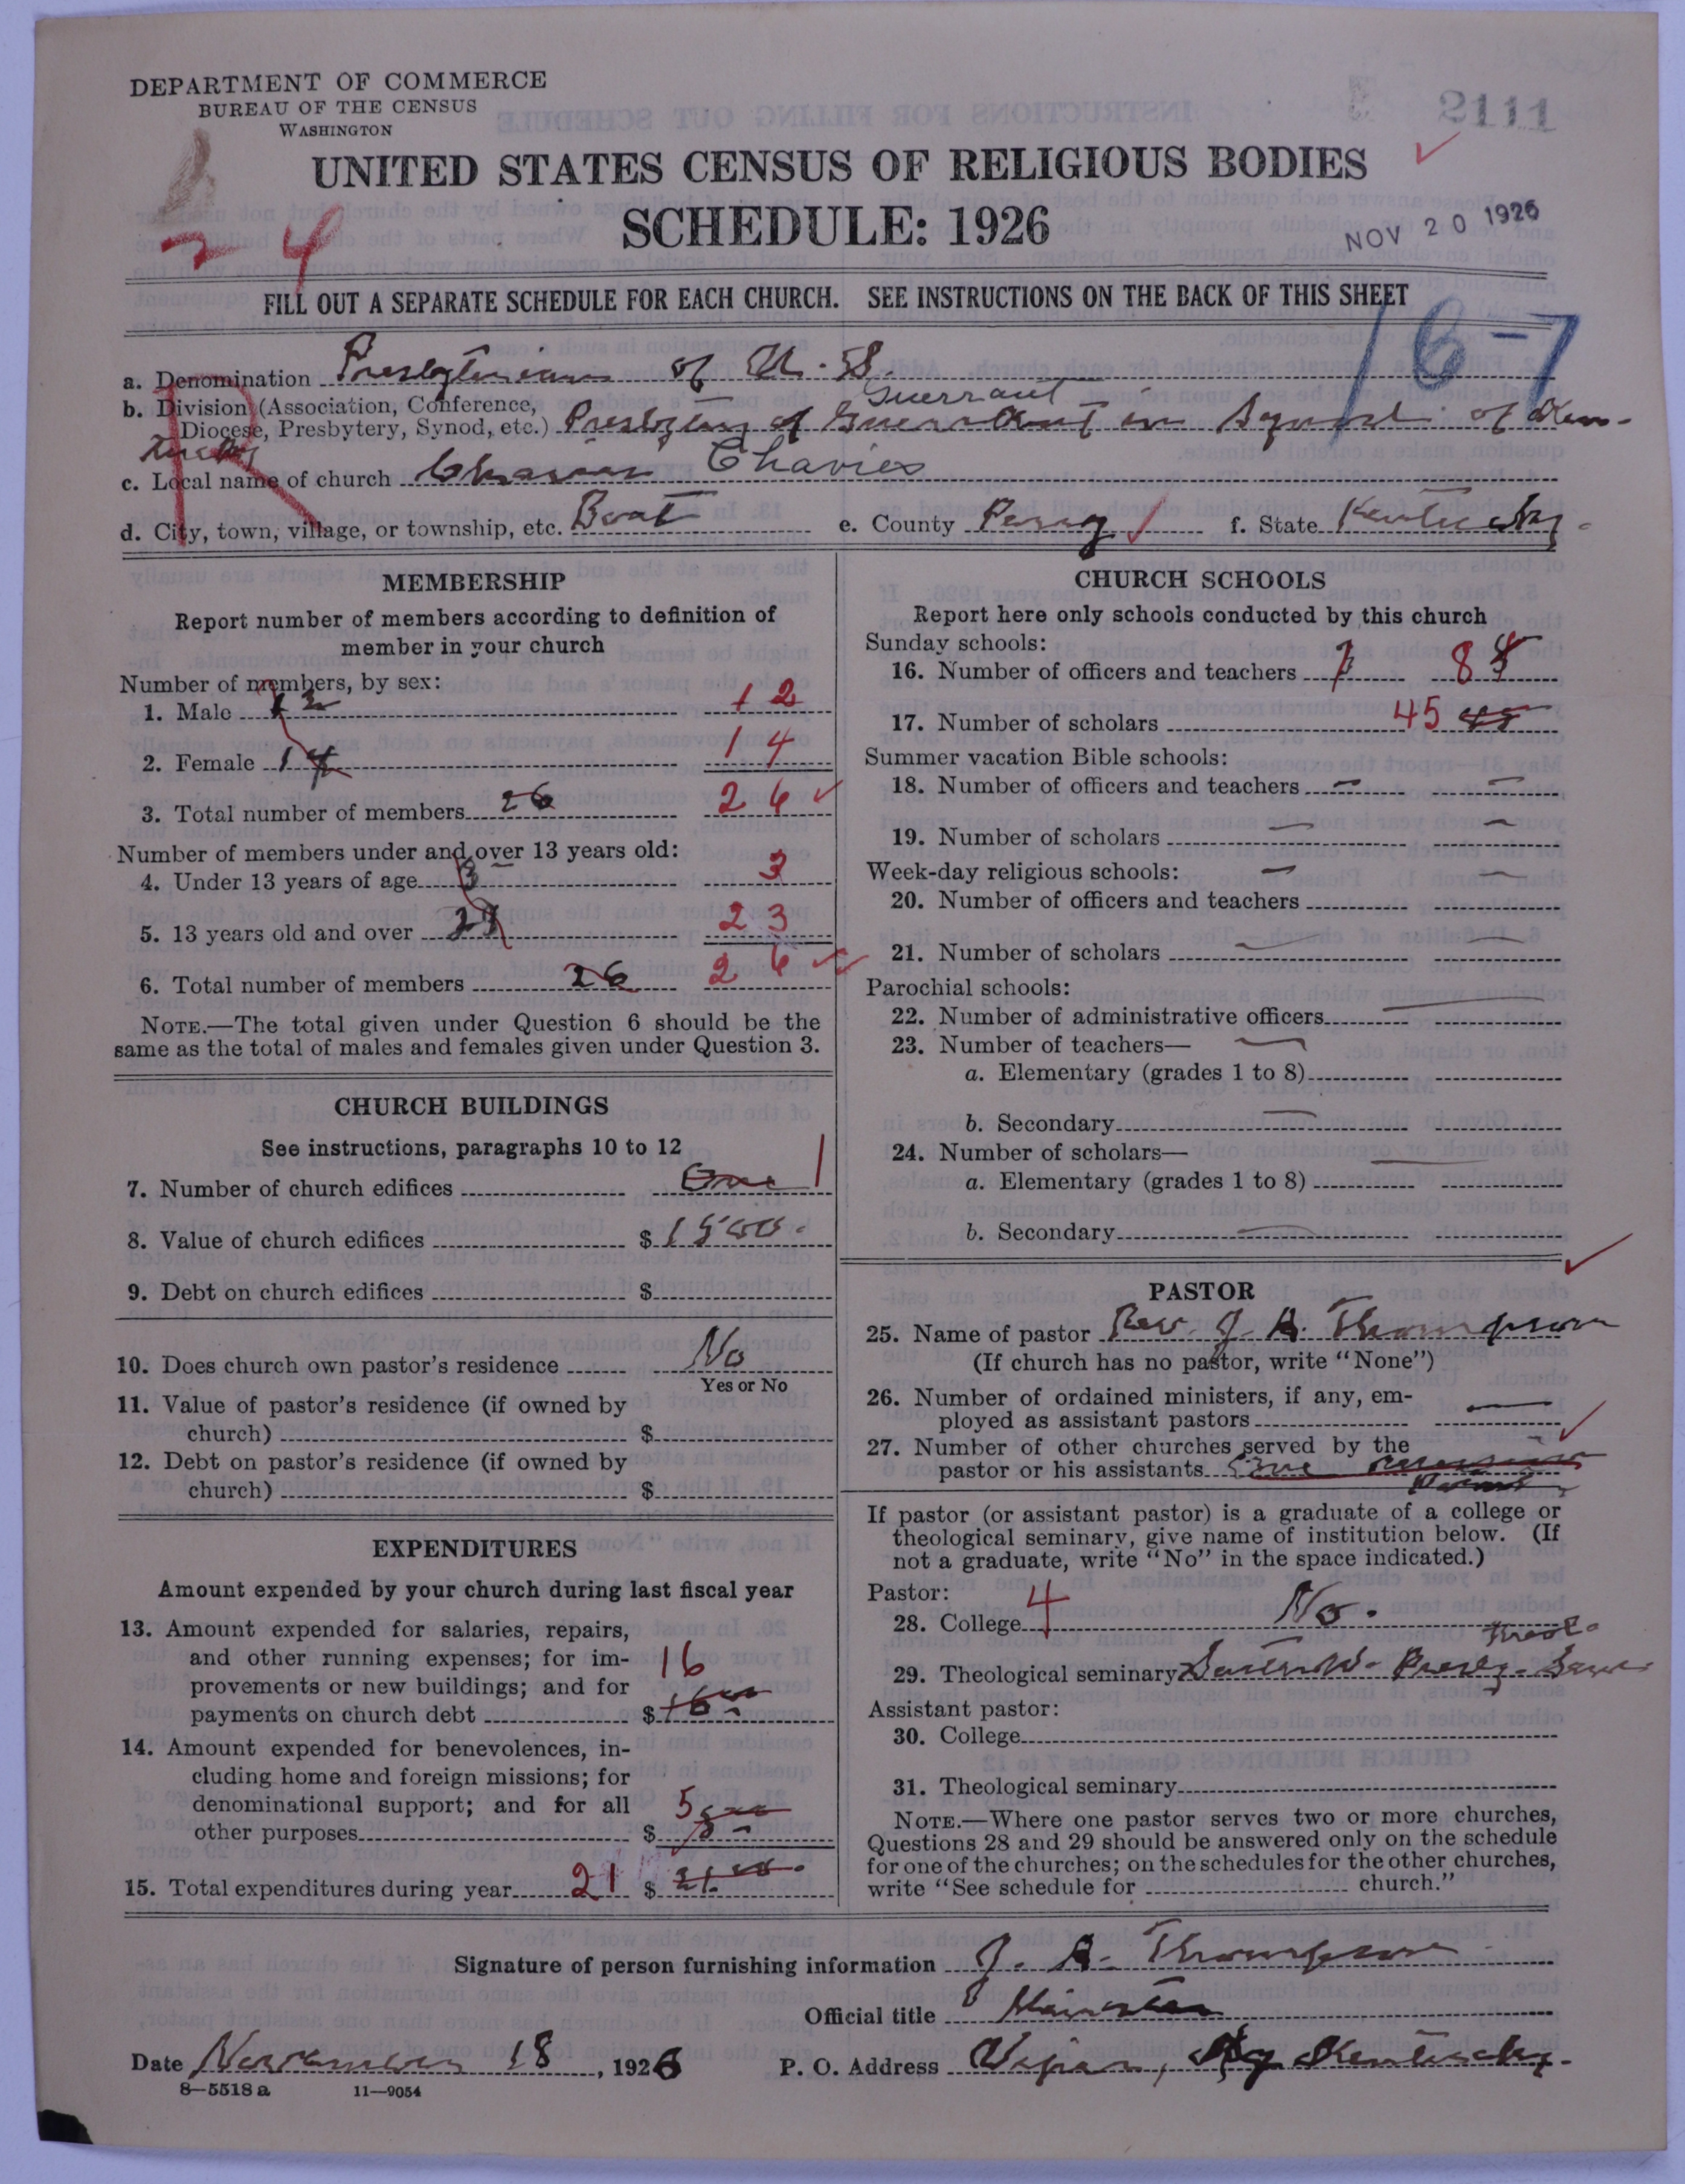 DEPARTMENT OF COMMERCE
BUREAU OF THE CENSUS
WASHINGTON
2111
UNITED STATES CENSUS OF RELIGIOUS BODIES
SCHEDULE: 1926
NOV 20 1926
24
FILL OUT A SEPARATE SCHEDULE FOR EACH CHURCH. SEE INSTRUCTIONS ON THE BACK OF THIS SHEET
16-7
R
a. Denomination Presbyterian of U.S.
Guerrant
b. Division (Association, Conference, Diocese, Presbytery, Synod, etc.) Presbytery of Guerrant in Synod of Ken-
tucky
c. Local name of church Chavies Chavies
d. City, town, village, or township, etc. Boat e. County Perry f. State Kentucky.
MEMBERSHIP
Report number of members according to definition of
member in your church
Number of members, by sex:
1. Male 12 12
2. Female 14 14
3. Total number of members 26 26
Number of members under and over 13 years old:
4. Under 13 years of age 3 3
5. 13 years old and over 23 23
6. Total number of members 26 26
NOTE.—The total given under Question 6 should be the
same as the total of males and females given under Question 3.
CHURCH BUILDINGS
See instructions, paragraphs 10 to 12
7. Number of church edifices One 1
8. Value of church edifices $ 1500.
9. Debt on church edifices $
10. Does church own pastor's residence No
Yes or No
11. Value of pastor's residence (if owned by
church) $
12. Debt on pastor's residence (if owned by
church) $
EXPENDITURES
Amount expended by your church during last fiscal year
13. Amount expended for salaries, repairs,
and other running expenses; for im-
provements or new buildings; and for 16
payments on church debt $ 16
14. Amount expended for benevolences, in-
cluding home and foreign missions; for
denominational support; and for all 5
other purposes $ 5
15. Total expenditures during year 21 $ 21
CHURCH SCHOOLS
Report here only schools conducted by this church
Sunday schools:
16. Number of officers and teachers 7 8 8
17. Number of scholars 45 45
Summer vacation Bible schools:
18. Number of officers and teachers — —
19. Number of scholars — —
Week-day religious schools: — —
20. Number of officers and teachers
21. Number of scholars — —
Parochial schools:
22. Number of administrative officers —
23. Number of teachers— —
a. Elementary (grades 1 to 8)
b. Secondary —
24. Number of scholars— —
a. Elementary (grades 1 to 8)
b. Secondary —
PASTOR
25. Name of pastor Rev. J. A. Thompson
(If church has no pastor, write "None")
26. Number of ordained ministers, if any, em-
ployed as assistant pastors —
27. Number of other churches served by the
pastor or his assistants
If pastor (or assistant pastor) is a graduate of a college or
theological seminary, give name of institution below. (If
not a graduate, write "No" in the space indicated.)
Pastor:
28. College 4 No.
Theol.
29. Theological seminary Presby. Sem.
Assistant pastor:
30. College
31. Theological seminary
NOTE.—Where one pastor serves two or more churches,
Questions 28 and 29 should be answered only on the schedule
for one of the churches; on the schedules for the other churches,
write "See schedule for church."
Signature of person furnishing information J. A. Thompson
Official title Minister
Date November 18, 1926 P. O. Address Kentucky.
8—5518 a 11—9054